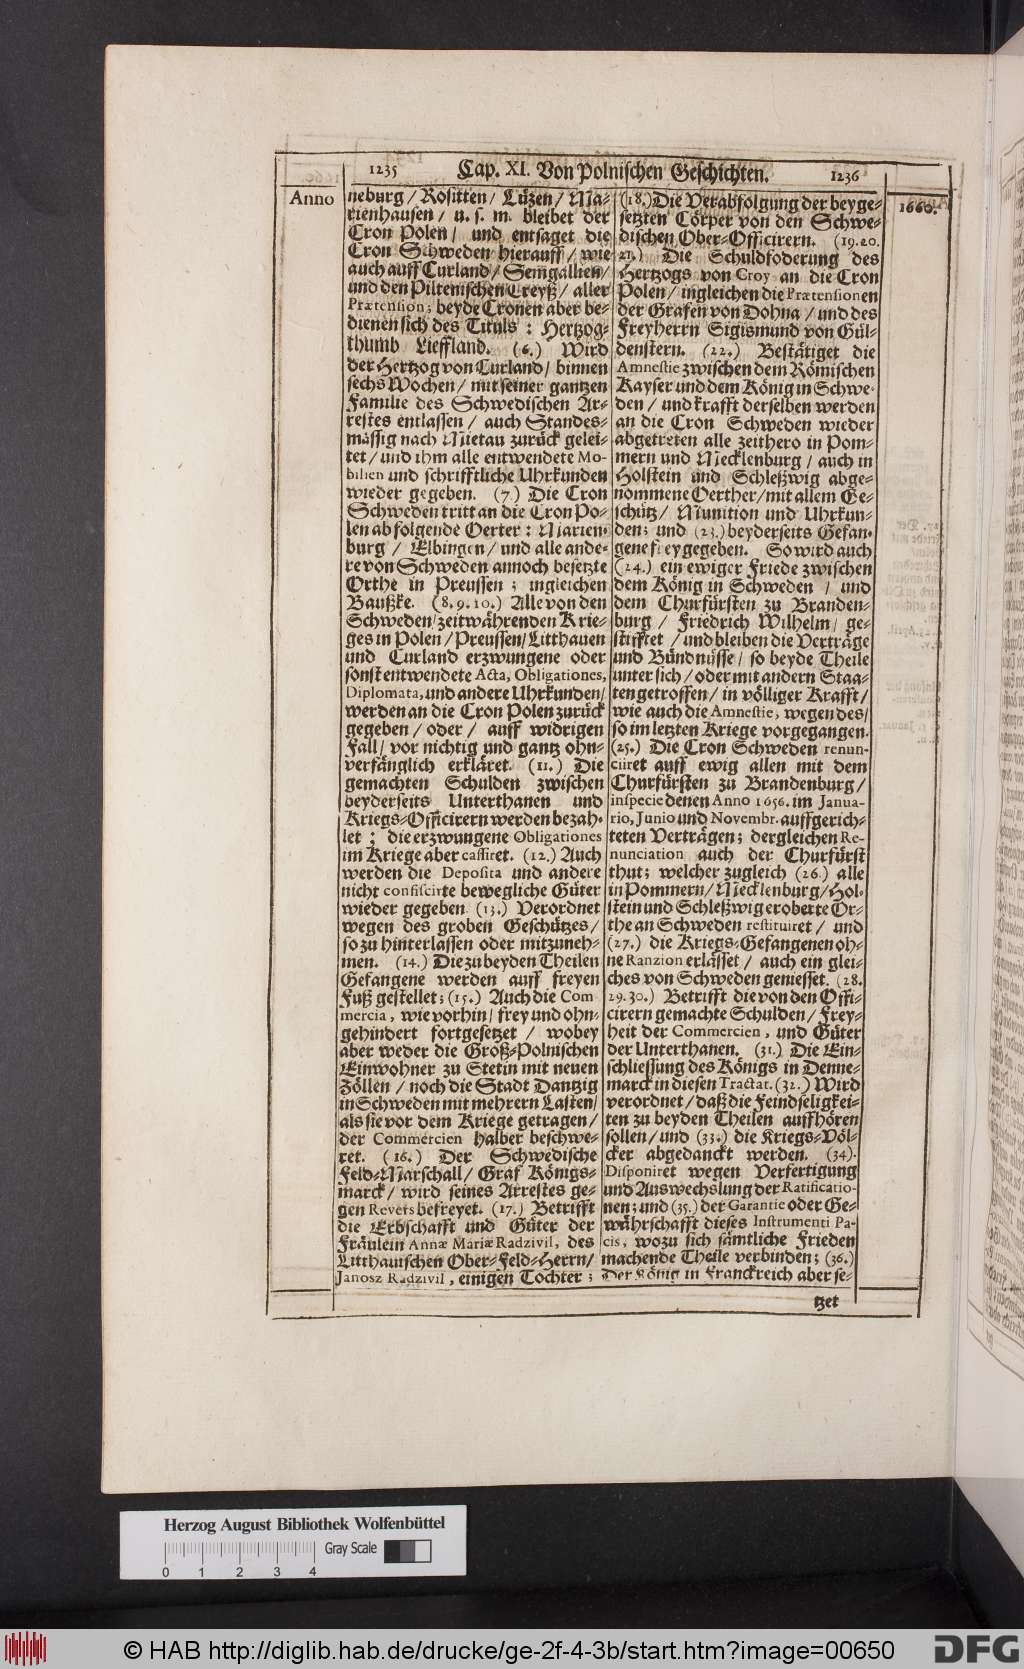 1235 Cap. XI. Von Polnischen Geschichten. 1236
Anno
neburg / Rositten / Lüzen / Ma-
rienhausen / u. s. m. bleibet der
Cron Polen / und entsaget die
Cron Schweden hierauff / wie
auch auff Curland / Semgallien /
und den Piltenischen Creyß / aller
Prætension; beyde Cronen aber be-
dienen sich des Tituls : Hertzog-
thumb Lieffland. (6.) Wird
der Hertzog von Curland / binnen
sechs Wochen / mit seiner gantzen
Familie des Schwedischen Ar-
restes entlassen / auch Standes-
mässig nach Mietau zurück gelei-
tet / und ihm alle entwendete Mo-
bilien und schrifftliche Uhrkunden
wieder gegeben. (7.) Die Cron
Schweden tritt an die Cron Po-
len abfolgende Oerter : Marien-
burg / Elbingen / und alle ande-
re von Schweden annoch besetzte
Orthe in Preussen ; ingleichen
Baußke. (8. 9. 10.) Alle von den
Schweden / zeitwährenden Krie-
ges in Polen / Preussen / Litthauen
und Curland erzwungene oder
sonst entwendete Acta, Obligationes,
Diplomata, und andere Uhrkunden /
werden an die Cron Polen zurück
gegeben / oder / auff widrigen
Fall / vor nichtig und gantz ohn-
verfänglich erkläret. (11.) Die
gemachten Schulden zwischen
beyderseits Unterthanen und
Kriegs-Officirern werden bezah-
let ; die erzwungene Obligationes
im Kriege aber cassiret. (12.) Auch
werden die Deposita und andere
nicht confiscirte bewegliche Güter
wieder gegeben (13.) Verordnet
wegen des groben Geschützes /
so zu hinterlassen oder mitzuneh-
men. (14.) Die zu beyden Theilen
Gefangene werden auff freyen
Fuß gestellet; (15.) Auch die Com
mercia, wie vorhin / frey und ohn-
gehindert fortgesetzet / wobey
aber weder die Groß-Polnischen
Einwohner zu Stetin mit neuen
Zöllen / noch die Stadt Dantzig
in Schweden mit mehrern Lasten /
als sie vor dem Kriege getragen /
der Commercien halber beschwe-
ret. (16.) Der Schwedische
Feld-Marschall / Graf Königs-
marck / wird seines Arrestes ge-
gen Revers befreyet. (17.) Betrifft
die Erbschafft und Güter der
Fräulein Annæ Mariæ Radzivil, des
Litthauischen Ober-Feld-Herrn /
Janosz Radzivil, einigen Tochter ;
1660.
(18.) Die Verabfolgung der beyge-
setzten Cörper von den Schwe-
dischen Ober-Officirern. (19. 20.
21.) Die Schuldfoderung des
Hertzogs von Croy an die Cron
Polen / ingleichen die Prætensionen
der Grafen von Dohna / und des
Freyherrn Sigismund von Gül-
denstern. (22.) Bestätiget die
Amnestie zwischen dem Römischen
Kayser und dem König in Schwe-
den / und krafft derselben werden
an die Cron Schweden wieder
abgetreten alle zeithero in Pom-
mern und Mecklenburg / auch in
Holstein und Schleßwig abge-
nommene Oerther / mit allem Ge-
schütz / Munition und Uhrkun-
den; und (23.) beyderseits Gefan-
gene frey gegeben. So wird auch
(24.) ein ewiger Friede zwischen
dem König in Schweden / und
dem Churfürsten zu Branden-
burg / Friedrich Wilhelm / ge-
stifftet / und bleiben die Verträge
und Bündnüsse / so beyde Theile
unter sich / oder mit andern Staa-
ten getroffen / in völliger Krafft /
wie auch die Amnestie, wegen des /
so im letzten Kriege vorgegangen.
(25.) Die Cron Schweden renun-
ciiret auff ewig allen mit dem
Churfürsten zu Brandenburg /
in specie denen Anno 1656. im Janua-
rio, Junio und Novembr. auffgerich-
teten Verträgen; dergleichen Re-
nunciation auch der Churfürst
thut; welcher zugleich (26.) alle
in Pommern / Mecklenburg / Hol-
stein und Schleßwig eroberte Or-
the an Schweden restituiret / und
(27.) die Kriegs-Gefangenen oh-
ne Ranzion erlässet / auch ein glei-
ches von Schweden geniesset. (28.
29. 30.) Betrifft die von den Offi-
cirern gemachte Schulden / Frey-
heit der Commercien, und Güter
der Unterthanen. (31.) Die Ein-
schliessung des Königs in Denne-
marck in diesen Tractat. (32.) Wird
verordnet / daß die Feindseligkei-
ten zu beyden Theilen auffhören
sollen / und (33.) die Kriegs-Völ-
cker abgedanckt werden. (34).
Disponiret wegen Verfertigung
und Auswechslung der Ratificatio-
nen; und (35.) der Garantie oder Ge-
währschafft dieses Instrumenti Pa-
cis, wozu sich sämtliche Frieden
machende Theile verbinden; (36.)
Der König in Franckreich aber se-
tzet
Herzog August Bibliothek Wolfenbüttel
Gray Scale
0 1 2 3 4
© HAB http://diglib.hab.de/drucke/ge-2f-4-3b/start.htm?image=00650
DFG